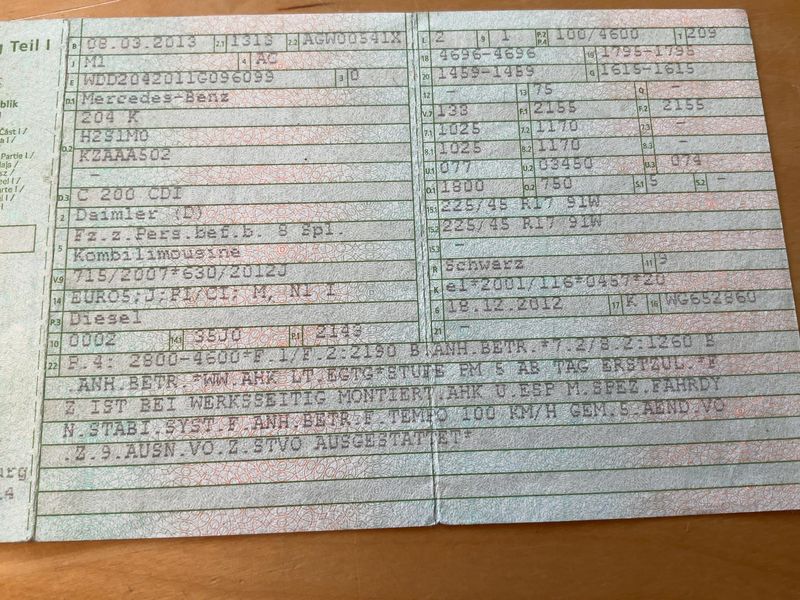 g Teil I
blik
Část I /
Partie I /
B 08.03.2013 2.1 1313 2.2 AGW00541X
J M1 4 AC
E WDD2042011G096099 3 0
D.1 Mercedes-Benz
204 K
D.2 H2S1M0
KZAAA502
-
D.3 C 200 CDI
2 Daimler (D)
5 Fz.z.Pers.bef.b. 8 Spl.
Kombilimousine
V.9 715/2007*630/2012J
14 EURO5;J;PI/CI; M, N1 I
P.3 Diesel
10 0002 14.1 35J0 P.1 2143
L 2 9 1 P.2 P.4 100/4600 T 209
18 4696-4696 19 1795-1795
20 1459-1459 G 1615-1615
12 - 13 75 Q -
V.7 133 F.1 2155 F.2 2155
7.1 1025 7.2 1170 7.3 -
8.1 1025 8.2 1170 8.3 -
U.1 077 U.2 03450 U.3 074
O.1 1800 O.2 750 S.1 5 S.2 -
15.1 225/45 R17 91W
15.2 225/45 R17 91W
15.3 -
R Schwarz 11 9
K e1*2001/116*0457*20
6 18.12.2012 17 K 16 WG652860
21 -
22 P.4: 2800-4600*F.1/F.2:2190 B.ANH.BETR.*7.2/8.2:1260 B
.ANH.BETR.*WW.AHK LT.EGTG*STUFE PM 5 AB TAG ERSTZUL.*F
Z IST BEI WERKSSEITIG MONTIERT.AHK U.ESP M.SPEZ.FAHRDY
N.STABI.SYST.F.ANH.BETR.F.TEMPO 100 KM/H GEM.5.AEND.VO
.Z.9.AUSN.VO.Z.STVO AUSGESTATTET*
urg